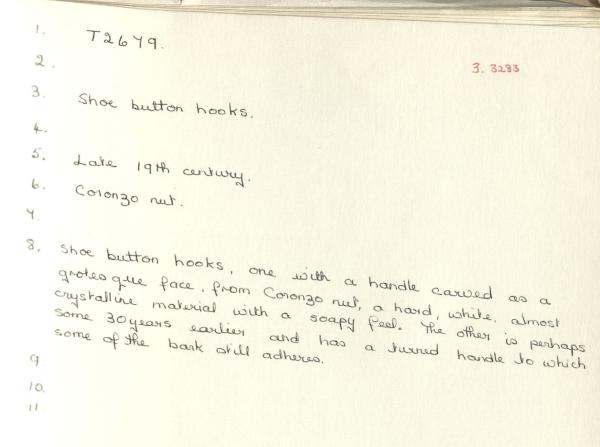 1. T2679.
2.
3. 3283
3. Shoe button hooks.
4.
5. Late 19th century.
6. Coronzo nut.
7.
8. Shoe button hooks, one with a handle carved as a
grotesque face, from Coronzo nut, a hard, white, almost
crystalline material with a soapy feel. The other is perhaps
some 30 years earlier and has a turned handle to which
some of the bark still adheres.
9.
10.
11.